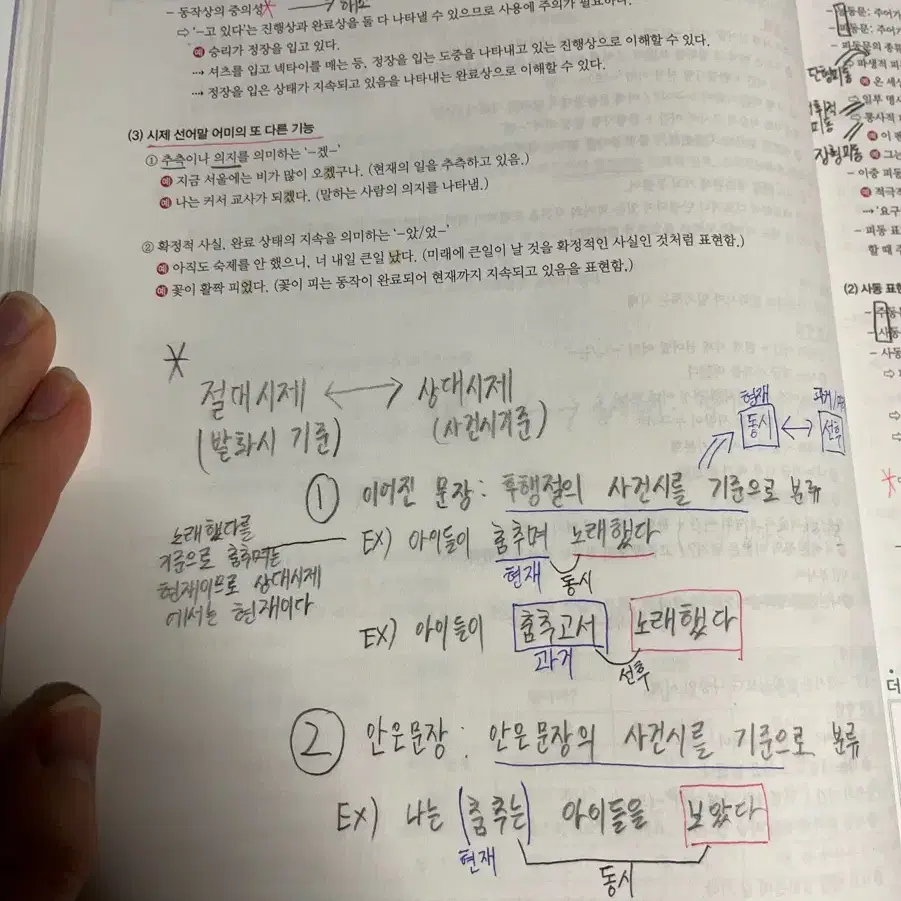 - 동작상의 중의성* → 해소
⇨ '-고 있다'는 진행상과 완료상을 둘 다 나타낼 수 있으므로 사용에 주의가 필요하다.
예 승리가 정장을 입고 있다.
⇢ 셔츠를 입고 넥타이를 매는 등, 정장을 입는 도중을 나타내고 있는 진행상으로 이해할 수 있다.
⇢ 정장을 입은 상태가 지속되고 있음을 나타내는 완료상으로 이해할 수 있다.
(3) 시제 선어말 어미의 또 다른 기능
① 추측이나 의지를 의미하는 '-겠-'
예 지금 서울에는 비가 많이 오겠구나. (현재의 일을 추측하고 있음.)
예 나는 커서 교사가 되겠다. (말하는 사람의 의지를 나타냄.)
② 확정적 사실, 완료 상태의 지속을 의미하는 '-았/었-'
예 아직도 숙제를 안 했으니, 너 내일 큰일 났다. (미래에 큰일이 날 것을 확정적인 사실인 것처럼 표현함.)
예 꽃이 활짝 피었다. (꽃이 피는 동작이 완료되어 현재까지 지속되고 있음을 표현함.)
*
절대시제 ↔ 상대시제
(발화시 기준) (사건시기준)
현재
동시 ↔ 선후
① 이어진 문장: 후행절의 사건시를 기준으로 분류
EX) 아이들이 춤추며 노래했다
현재 동시
노래했다를
기준으로 춤추며는
현재이므로 상대시제
에서는 현재이다
EX) 아이들이 춤추고서 노래했다
과거 선후
② 안은문장: 안은문장의 사건시를 기준으로 분류
EX) 나는 (춤추는) 아이들을 보았다
현재
동시
단형피동
피동
장형피동
- 피동문: 주어가
- 피동문의 종류
파생적
예 온 세상
일부 명사
통사적
예 그는
- 이중 피동
예 적극적
→ '요구
- 피동 표
할 때 주
(2) 사동 표현
- 주동문
- 사동
- 사동